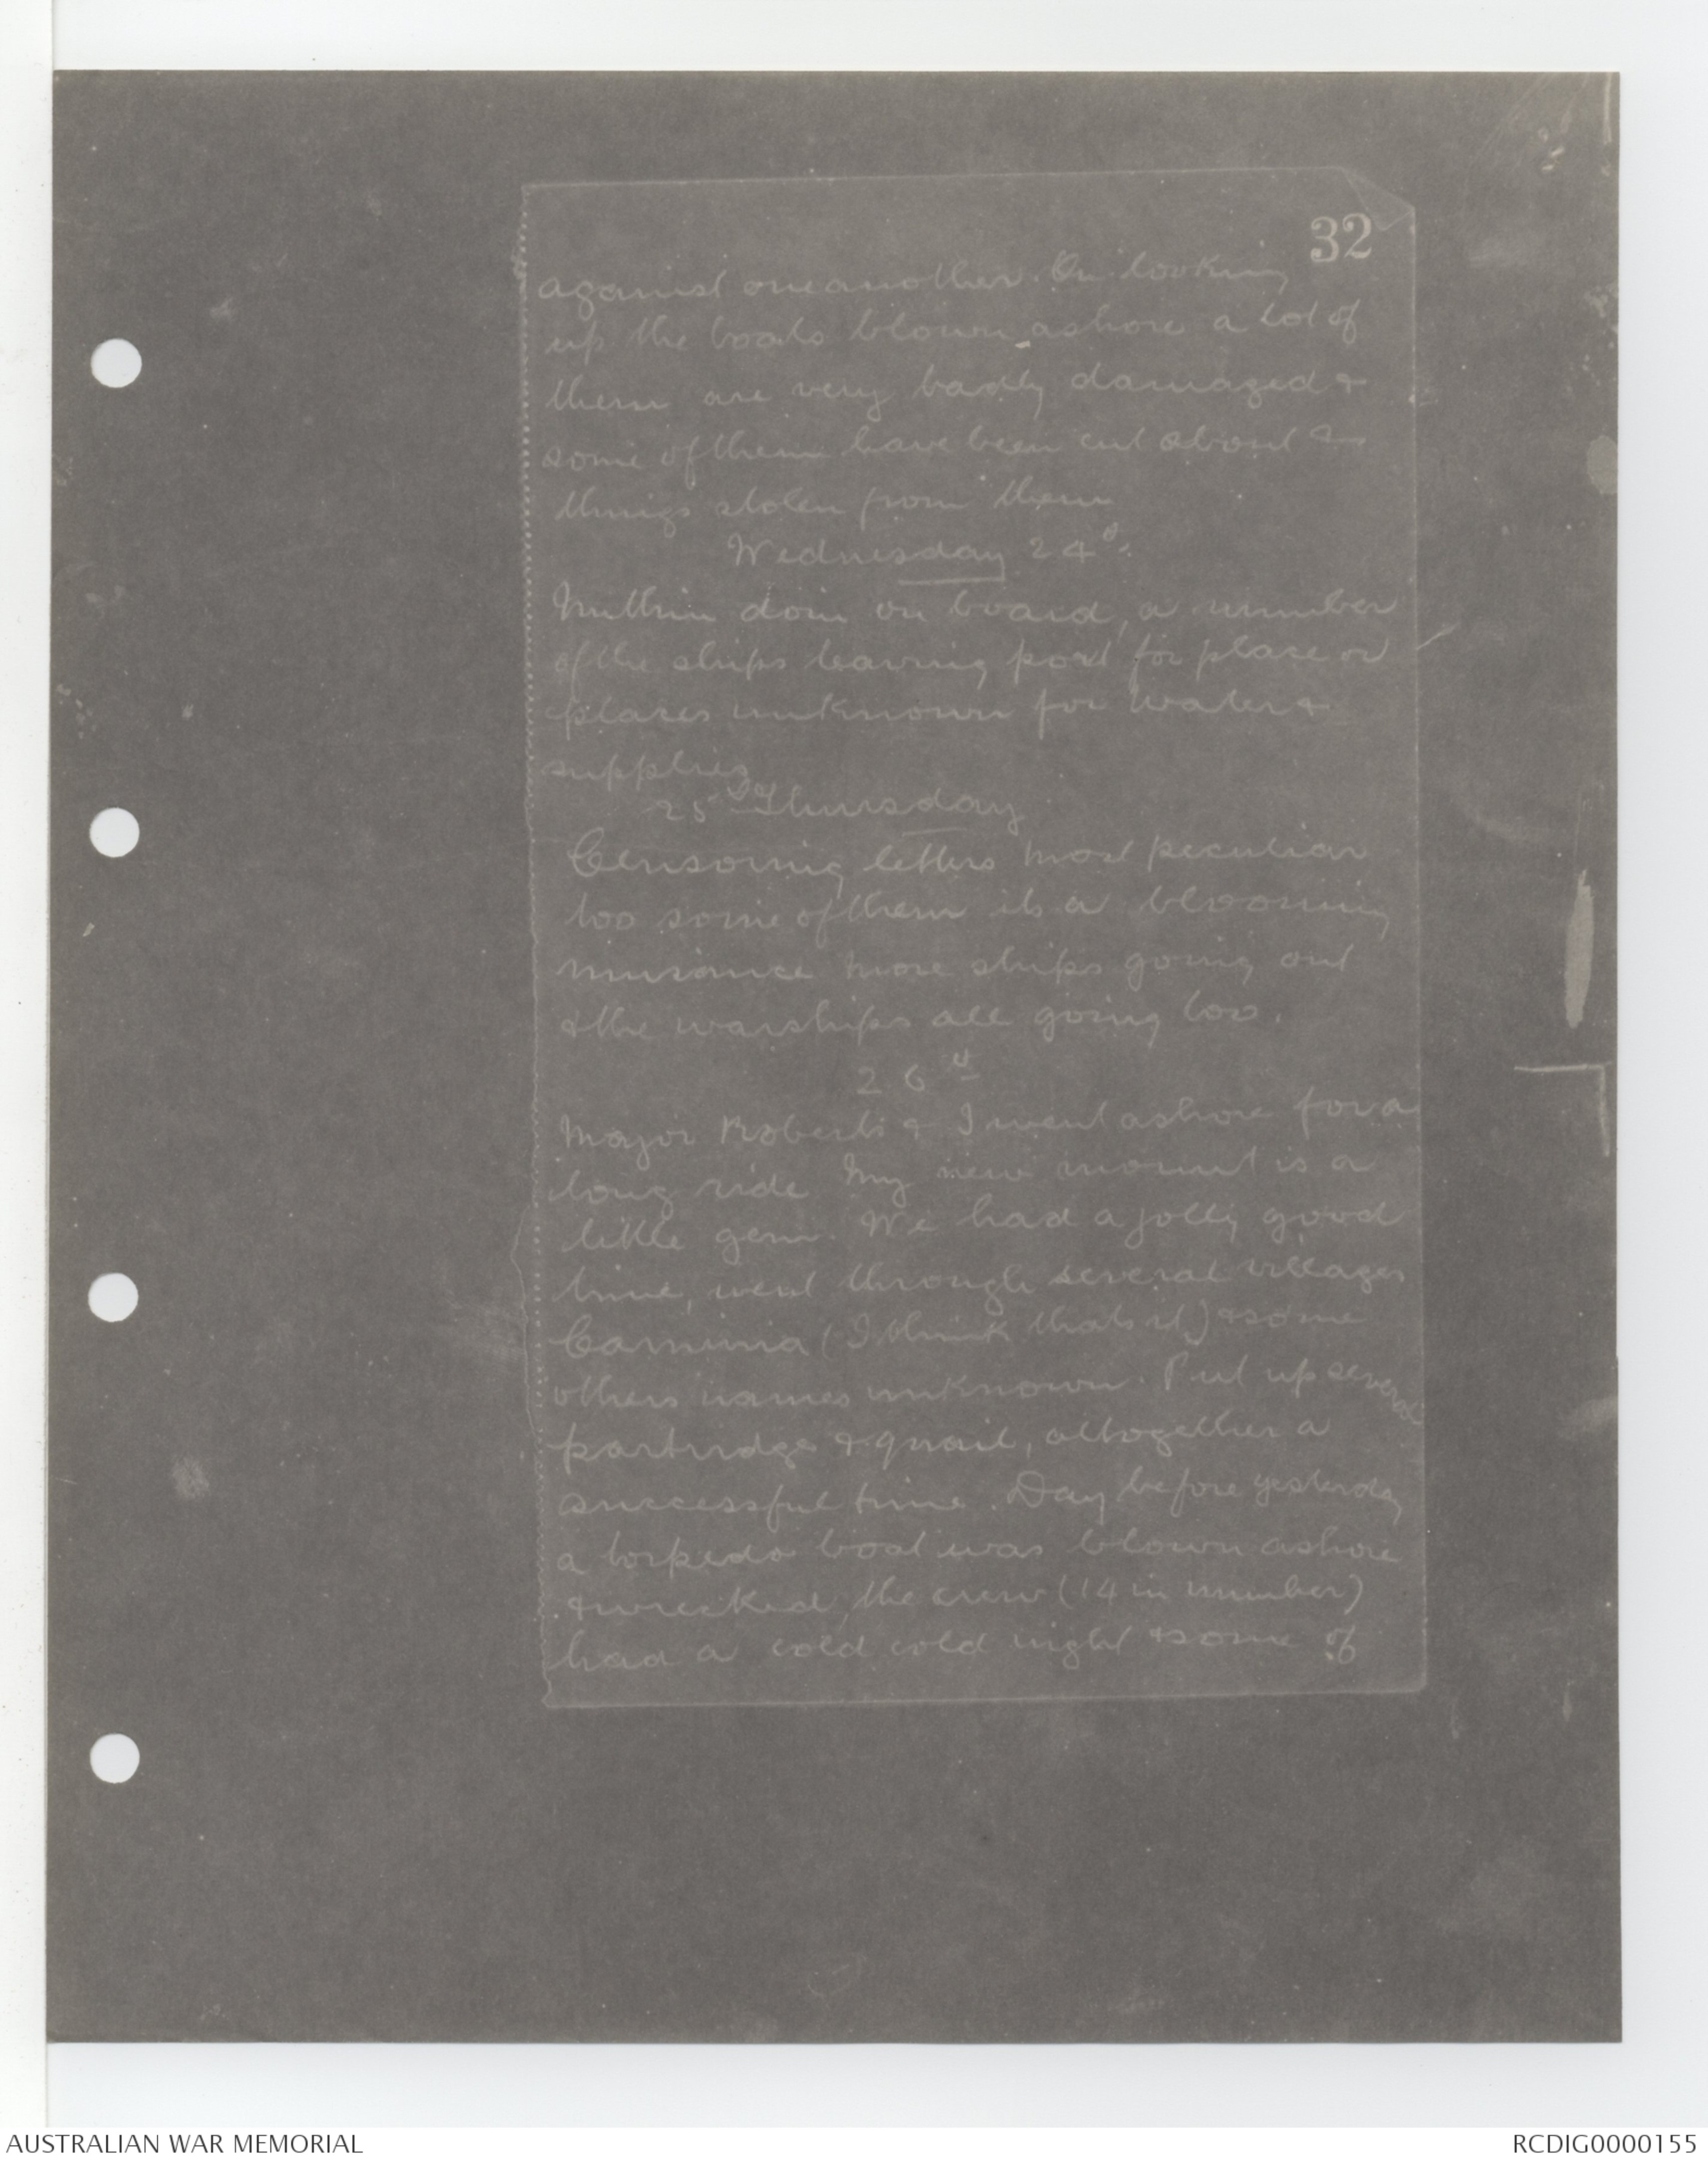 32
against oneanother. On looking
up the boats blown ashore a lot of
them are very badly damaged &
some of them have been cut about &
things stolen from them
Wednesday 24th.
Nuthin doin on board, a number
of the ships leaving port for place or
places unknown for water &
supplies
25th Thursday
Censoring letters most peculiar
too some of them its a blooming
nuisance more ships going out
& the warships all going too.
26th
Major Roberts & I went ashore for a
long ride My new mount is a
little gem. We had a jolly good
time, went through several villages
(I think thats it) & some
others names unknown. Put up several
partridge & quail, altogether a
successful time. Day before yesterday
a torpedo boat was blown ashore
& wrecked, the crew (14 in number)
had a cold cold night & some of
AUSTRALIAN WAR MEMORIAL
RCDIG0000155